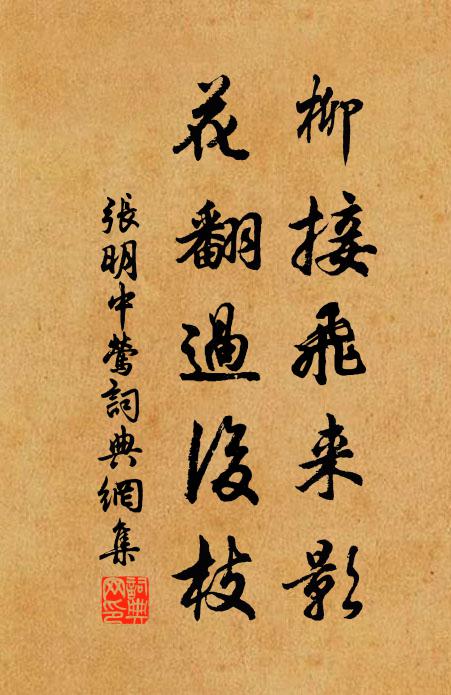 柳接飛来影
花翻過後枝
張明中鶯詞典網集
詞典网印